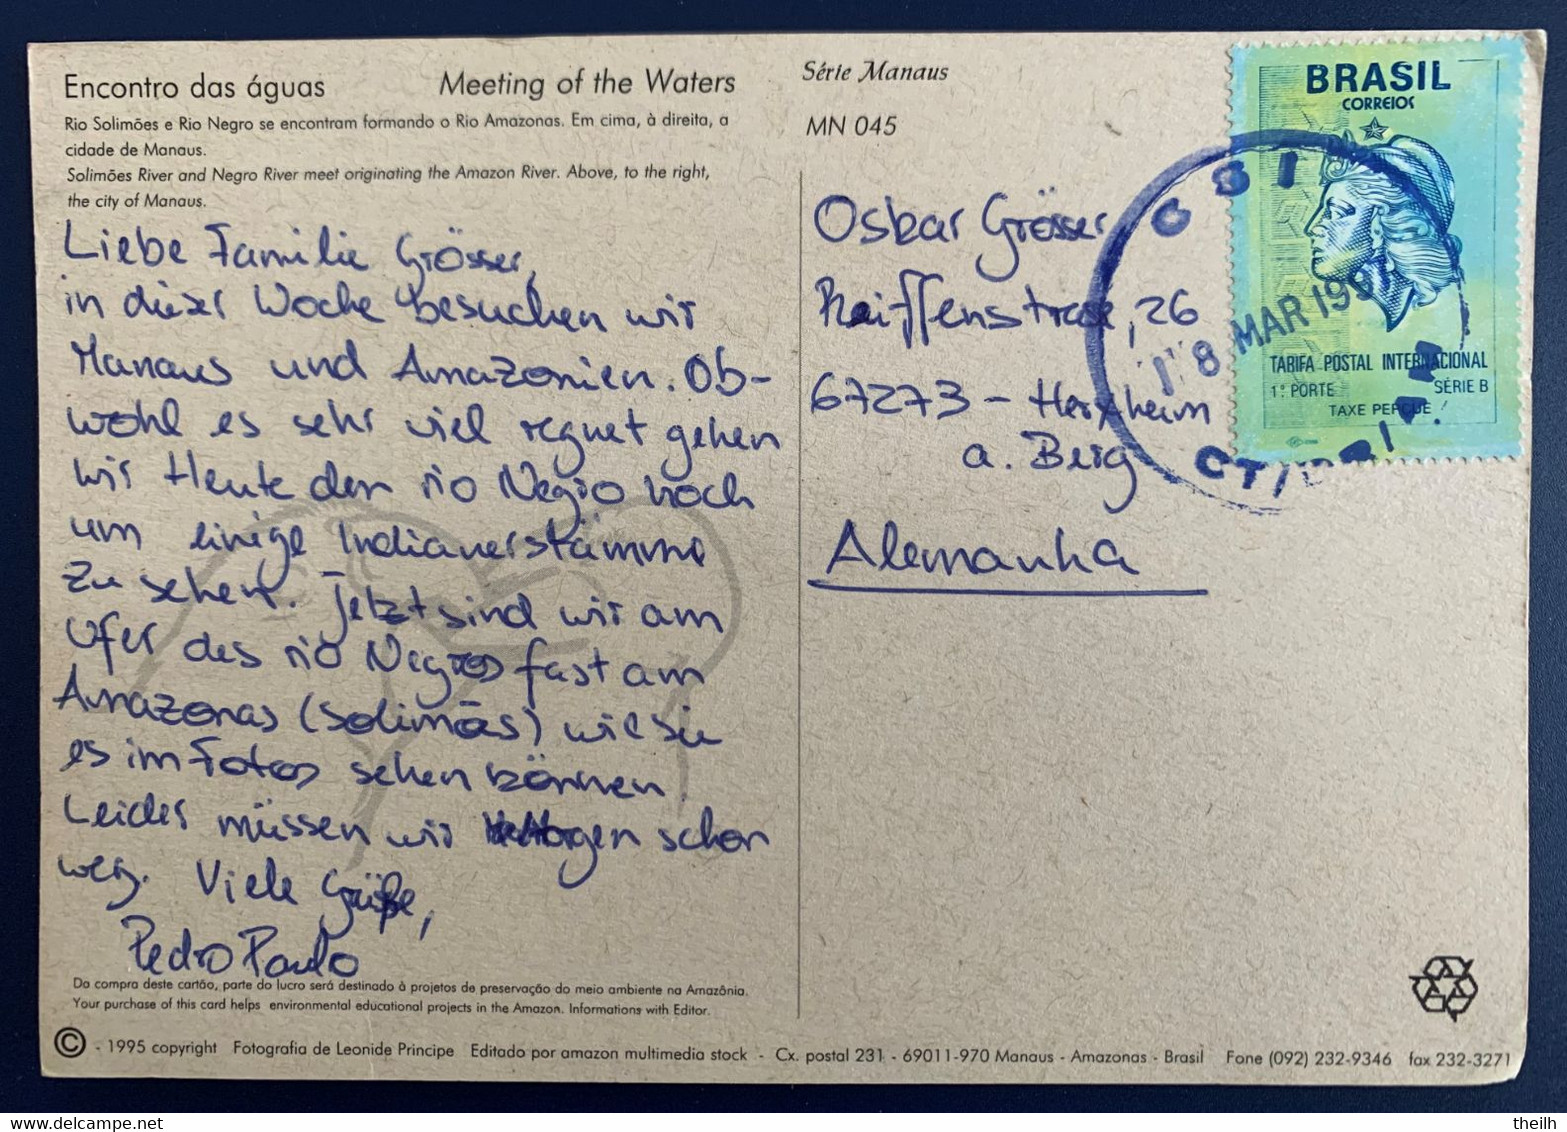 Encontro das águas Meeting of the Waters
Rio Solimões e Rio Negro se encontram formando o Rio Amazonas. Em cima, à direita, a
cidade de Manaus.
Solimões River and Negro River meet originating the Amazon River. Above, to the right,
the city of Manaus.
Liebe Familie Grösser,
in dieser Woche besuchen wir
Manaus und Amazonien. Ob-
wohl es sehr viel regnet gehen
wir Heute den rio Negro hoch
um einige Indianerstämme
zu sehen. Jetzt sind wir am
Ufer des rio Negros fast am
Amazonas (Solimões) wie Sie
es im Fotos sehen können.
Leider müssen wir Morgen schon
weg. Viele Grüße,
Pedro Paulo
Da compra deste cartão, parte do lucro será destinado à projetos de preservação do meio ambiente na Amazônia.
Your purchase of this card helps environmental educational projects in the Amazon. Informations with Editor.
© - 1995 copyright Fotografia de Leonide Principe Editado por amazon multimedia stock - Cx. postal 231 - 69011-970 Manaus - Amazonas - Brasil Fone (092) 232-9346 fax 232-3271
Série Manaus
MN 045
Oskar Grösser
Raiffenstrasse, 26
67273 - Herxheim
a. Berg
Alemanha
BRASIL
CORREIOS
TARIFA POSTAL INTERNACIONAL
1º PORTE SÉRIE B
TAXE PERÇUE
18 MAR 199
theilh
delcampe.net